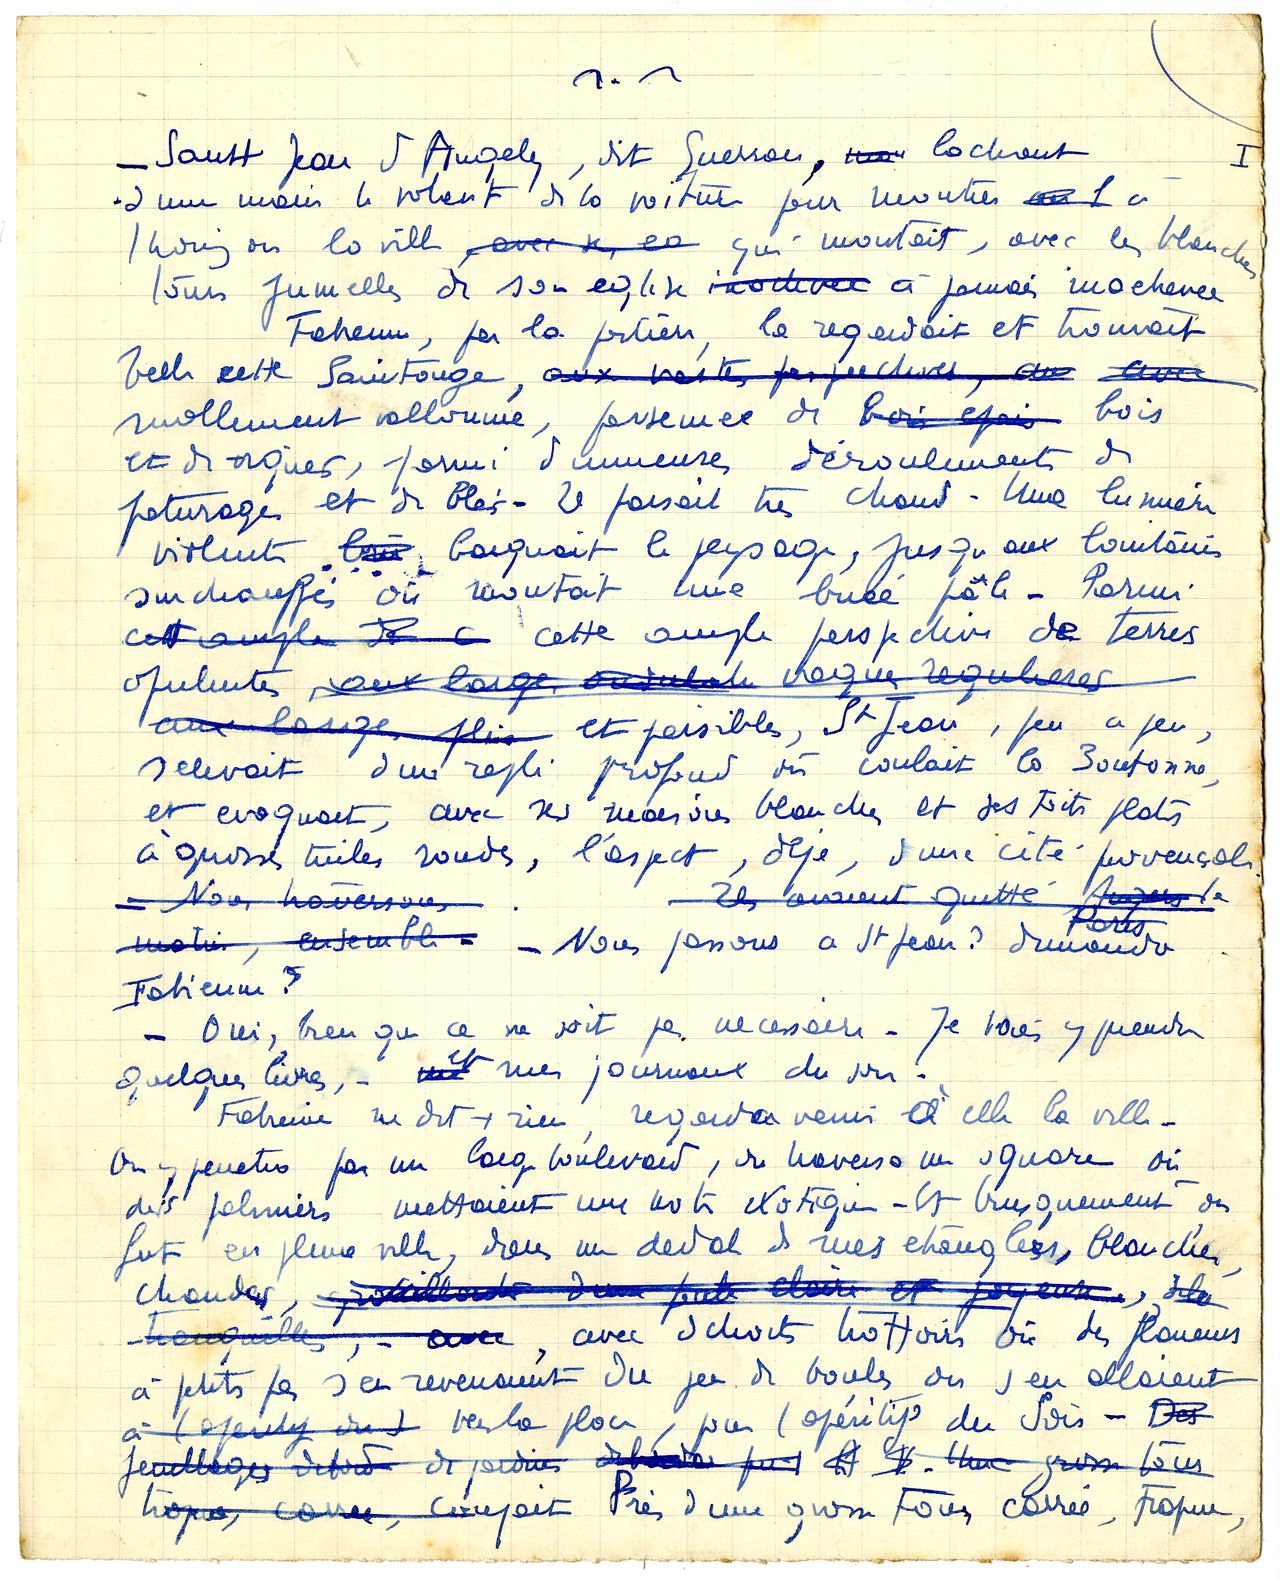 I
— Saint Jean d'Angely, dit Guerran, lachant
d'une main le volant de la voiture pour montrer à
l'horizon la ville avec qui montait, avec les blanches
tours jumelles de son eglise inachevee à jamais inachevee
Fabienne, par la portière, la regardait et trouvait
belle cette Saintonge, aux vastes perspectives, avec
mollement vallonnée, parsemee de bois epais bois
et de vignes, parmi d'immenses déroulements de
paturages et de blés - Il faisait très chaud - Une lumière
violente baignait le paysage, jusqu'aux lointains
surchauffés où montait une buée pâle - Parmi
cette ample de cette ample perspective de terres
opulentes, aux larges ondulat vagues regulieres
aux larges plis et paisibles, St Jean, peu a peu,
s'elevait d'un repli profond où coulait la Boutonne,
et evoquait, avec ses maisons blanches et ses toits plats
à grosses tuiles rondes, l'aspect, déjà, d'une cité provençale.
— Nous traversons Ils avaient quitté Angers le
Paris
matin, ensemble - — Nous passons a St Jean? demanda
Fabienne?
— Oui, bien que ce ne soit pas necessaire - Je vais y prendre
quelques livres, - et mes journaux du soir -
Fabienne ne dit + rien, regarda venir à elle la ville -
On y penetra par un large boulevard, on traversa un square où
des palmiers mettaient une note exotique - Et brusquement on
fut en pleine ville, dans un dedale de rues etranglées, blanches,
chaudes, grouillante d'une foule claire et joyeuse,
tranquilles, - avec, avec d'etroits trottoirs où des flaneurs
à petits pas s'en revenaient du jeu de boules ou s'en allaient
à l'aperitif du vers la place, pour l'apéritif du Soir - Des
feuillages de jardins Une grosse tour
trapue, carree, coupait Près d'une grosse tour carrée, trapue,